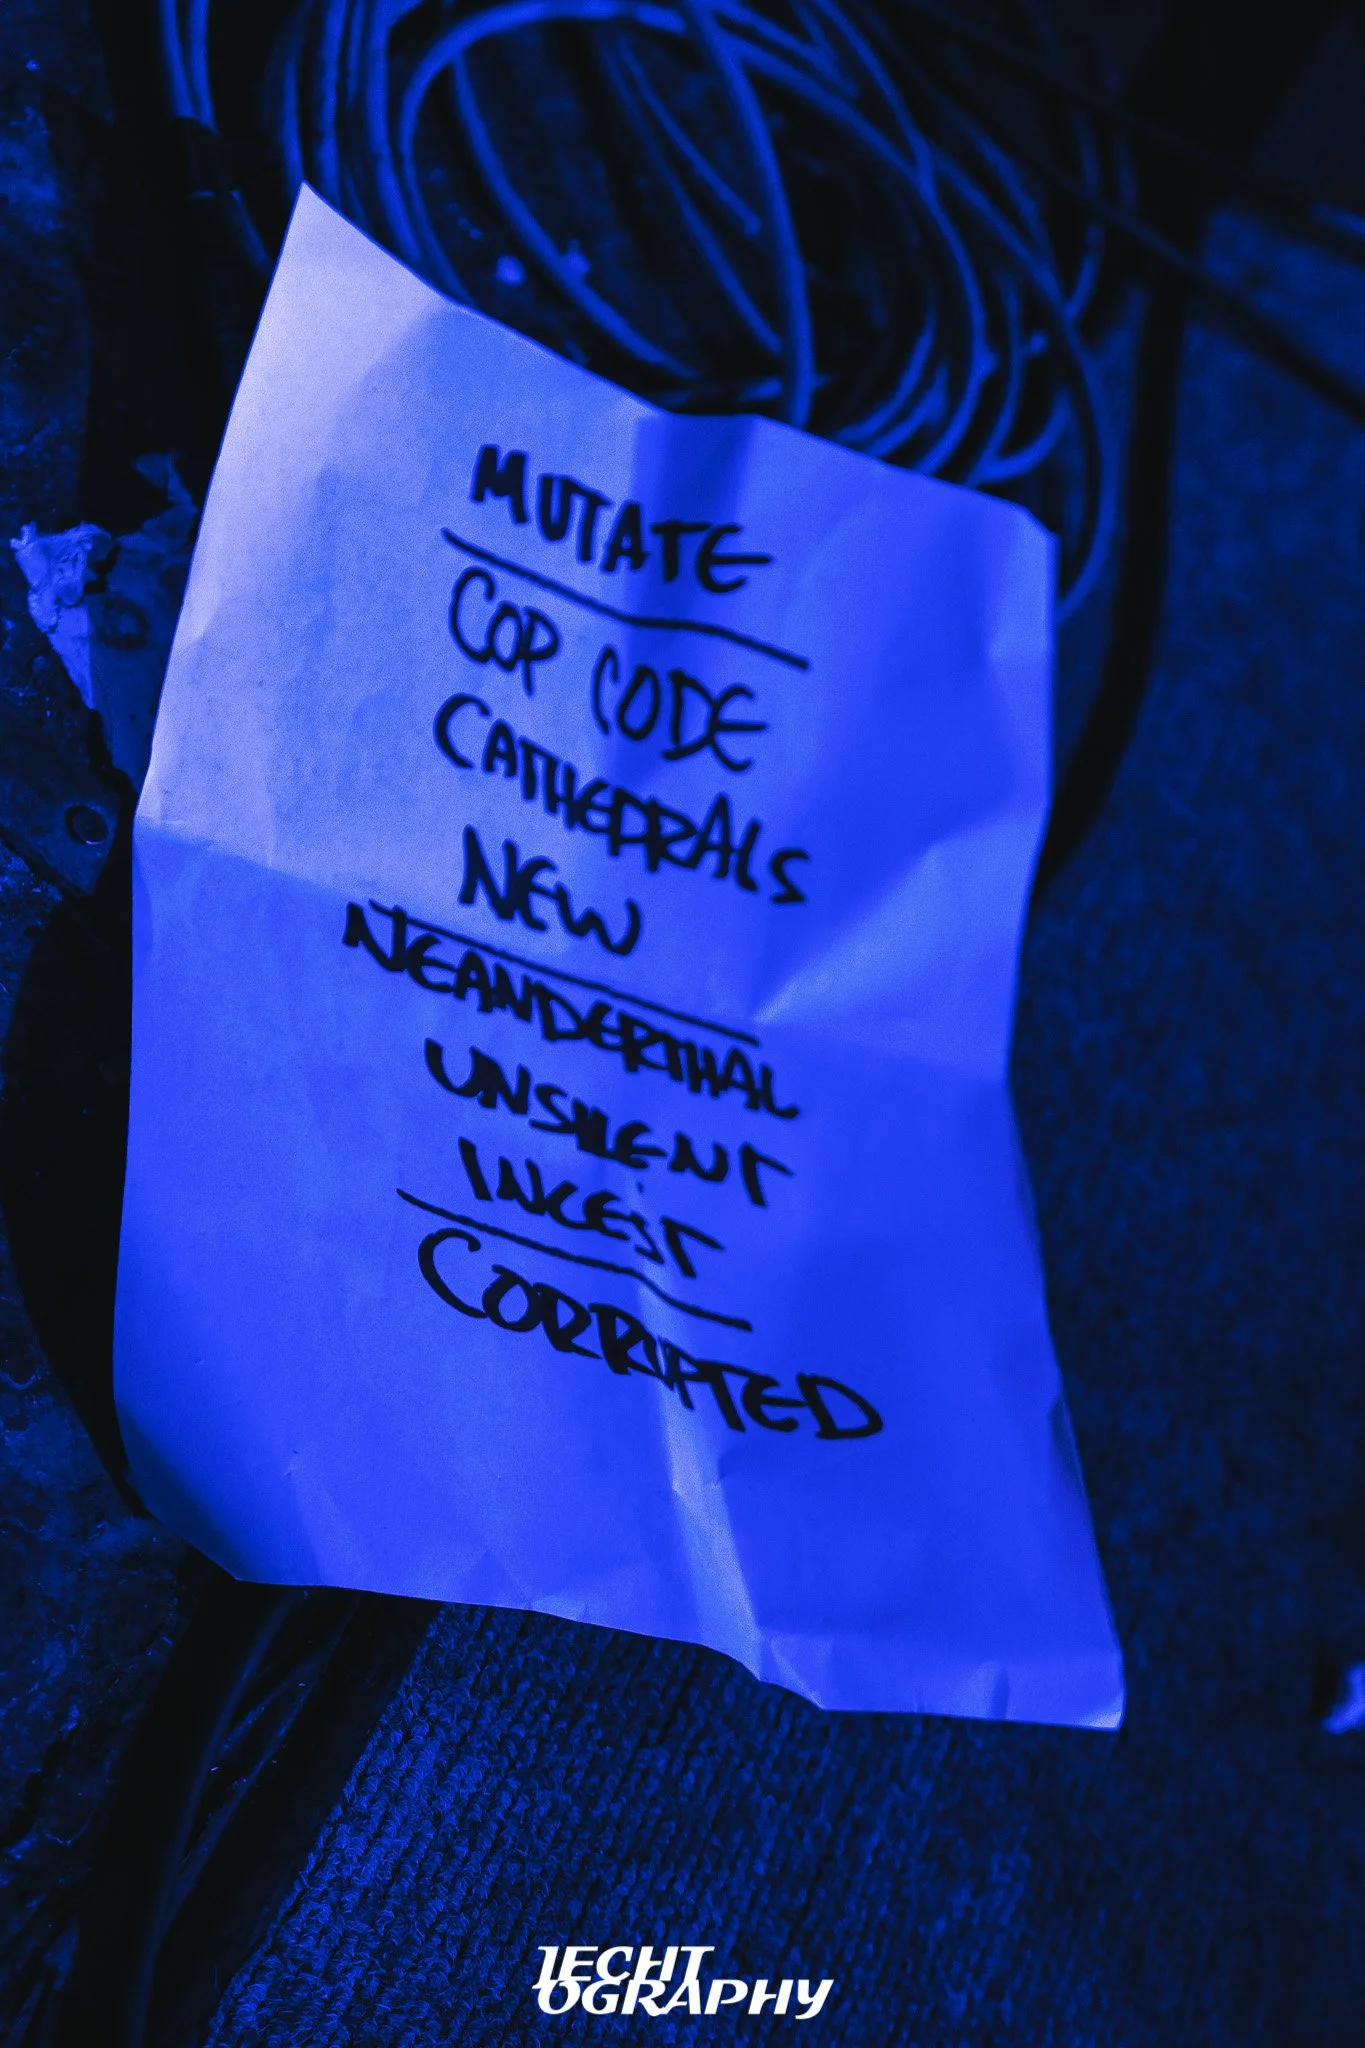 MUTATE
COP CODE
CATHEDRALS
NEW
NEANDERTHAL
UNSILENT
INCEST
CORRUPTED
JECHT
OGRAPHY